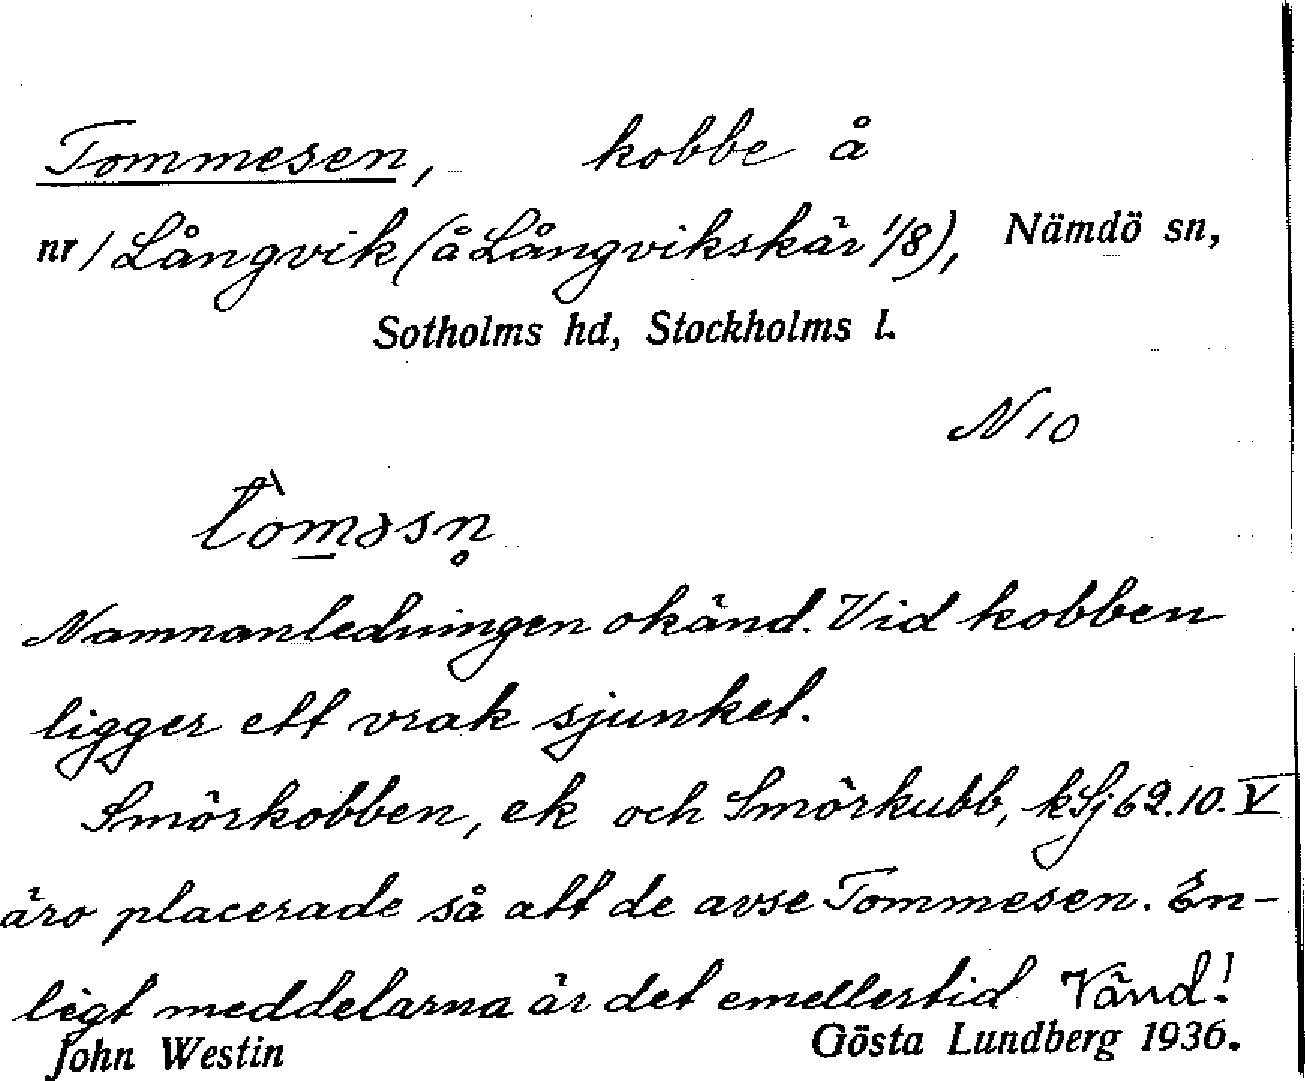 Tommesen, kobbe å
nr 1 Långvik (å Långvikskär 1/8), Nämdö sn,
Sotholms hd, Stockholms l.
N 10
tòməsn̥
Namnanledningen okänd. Vid kobben
ligger ett vrak sjunket.
Smörkobben, ek och Smörkubb, kSj 62.10.V
äro placerade så att de avse Tommesen. En-
ligt meddelarna är det emellertid Vänd!
John Westin Gösta Lundberg 1936.